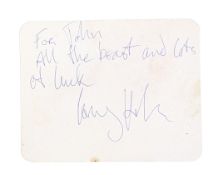 For John
All the best and lots
of luck